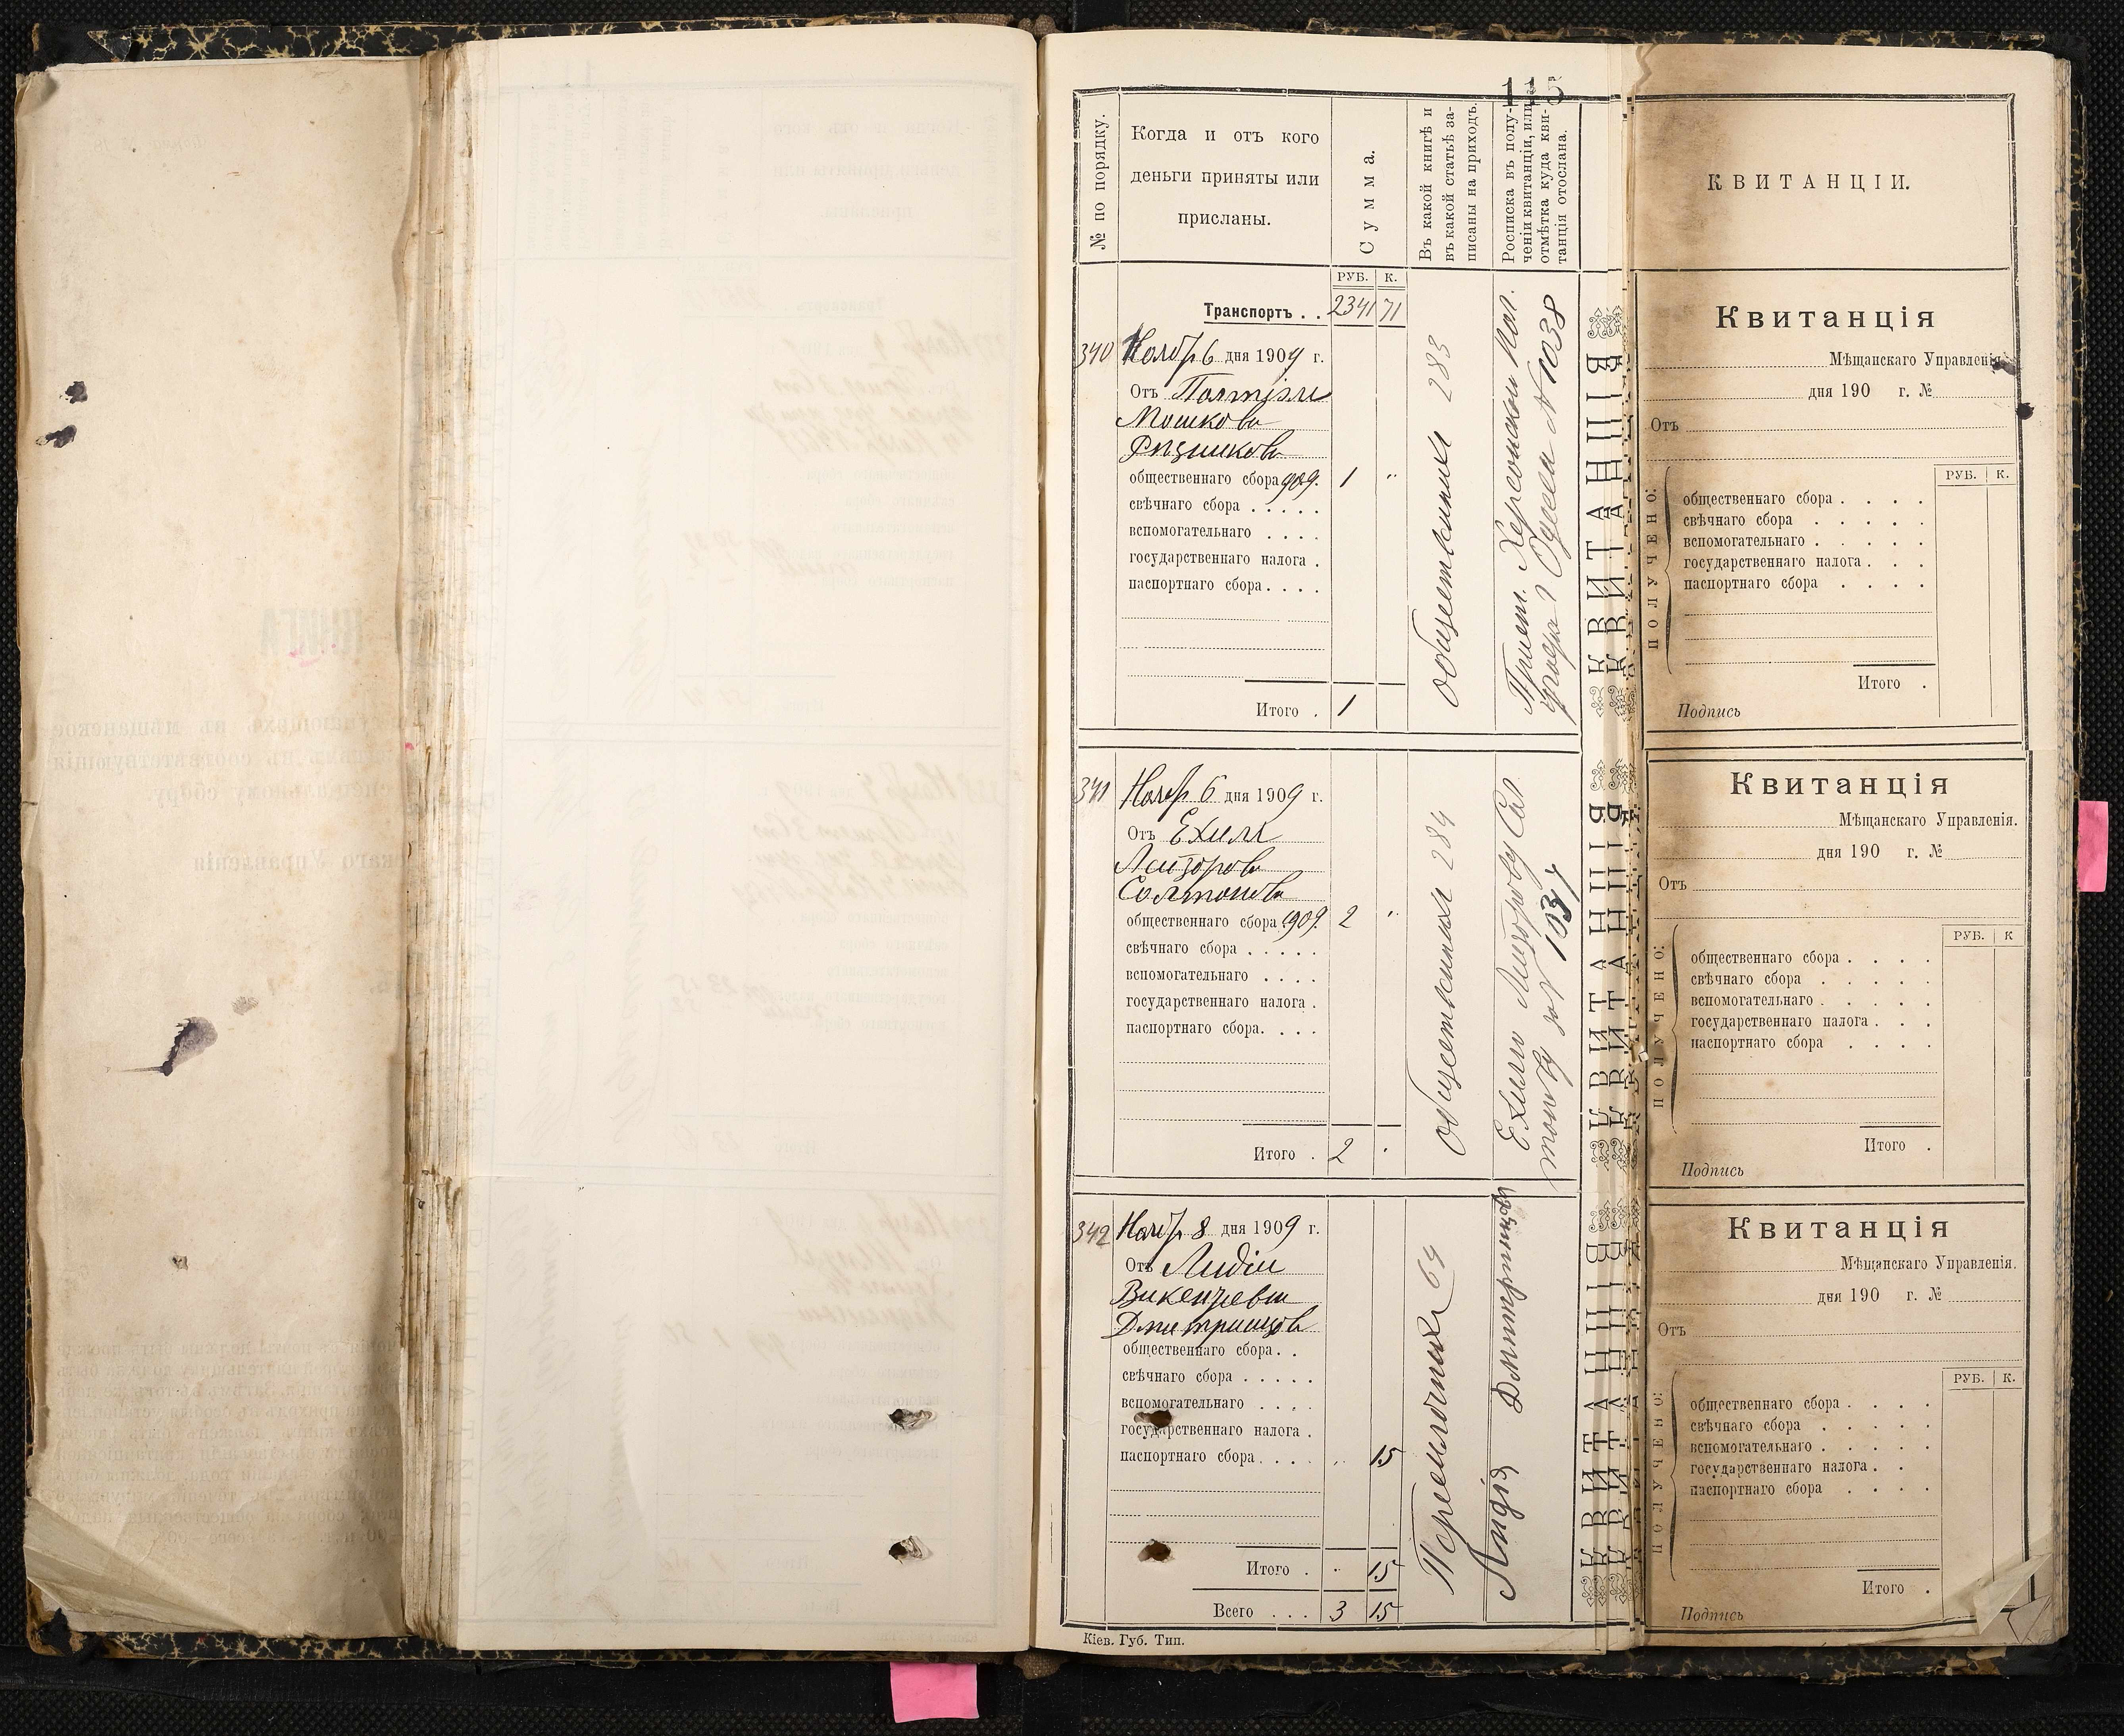 115
№ по порядку.
Когда и отъ кого
деньги приняты или
присланы.
Сумма.
Въ какой книгѣ и
въ какой статьѣ за-
писаны на приходъ.
Росписка въ полу-
ченіи квитанціи, или
отмѣтка куда кви-
танція отослана.
РУБ. К.
Транспортъ . . 2341 71
340 Ноябр 6 дня 1909 г.
Отъ
Мошкова
Рѣзникова
общественнаго сбора 909. 1 "
свѣчнаго сбора . . . . .
вспомогательнаго . . . .
государственнаго налога .
паспортнаго сбора . . . .
Итого . 1
общественная 283
Прист. Херсонской пол.
г Одесса № 1038
341 Ноябр 6 дня 1909 г.
Отъ Ехиля
Лейзорова
Солтонова
общественнаго сбора 1909. 2 "
свѣчнаго сбора . . . . .
вспомогательнаго . . . .
государственнаго налога .
паспортнаго сбора. . . .
Итого . 2 "
общественная 284
Ехилю Лейзорову Сол
тонову за № 1037
342 Ноябр 8 дня 1909 г.
Отъ Лидіи
Викентьевы
Дмитрищова
общественнаго сбора . .
свѣчнаго сбора . . . . .
вспомогательнаго . . . .
государственнаго налога .
паспортнаго сбора . . . . " 15
Итого . " 15
Всего . . . 3 15
Переходная 64
Лидія
Кіев. Губ. Тип.
КВИТАНЦІИ.
КВИТАНЦІЯ
КВИТАНЦІЯ
КВИТАНЦІЯ
Квитанція
Мѣщанскаго Управленія.
дня 190 г. №
Отъ
РУБ. К.
ПОЛУЧЕНО:
общественнаго сбора . . . .
свѣчнаго сбора . . . . .
вспомогательнаго . . . . .
государственнаго налога . . .
паспортнаго сбора . . . .
Итого .
Подпись
Квитанція
Мѣщанскаго Управленія.
дня 190 г. №
Отъ
РУБ. К
ПОЛУЧЕНО:
общественнаго сбора . . . .
свѣчнаго сбора . . . . .
вспомогательнаго . . . . .
государственнаго налога . . .
паспортнаго сбора . . . .
Итого .
Подпись
Квитанція
Мѣщанскаго Управленія.
дня 190 г. №
Отъ
РУБ. К.
ПОЛУЧЕНО:
общественнаго сбора . . . .
свѣчнаго сбора . . . . .
вспомогательнаго . . . . .
государственнаго налога . .
паспортнаго сбора . . . .
Итого .
Подпись